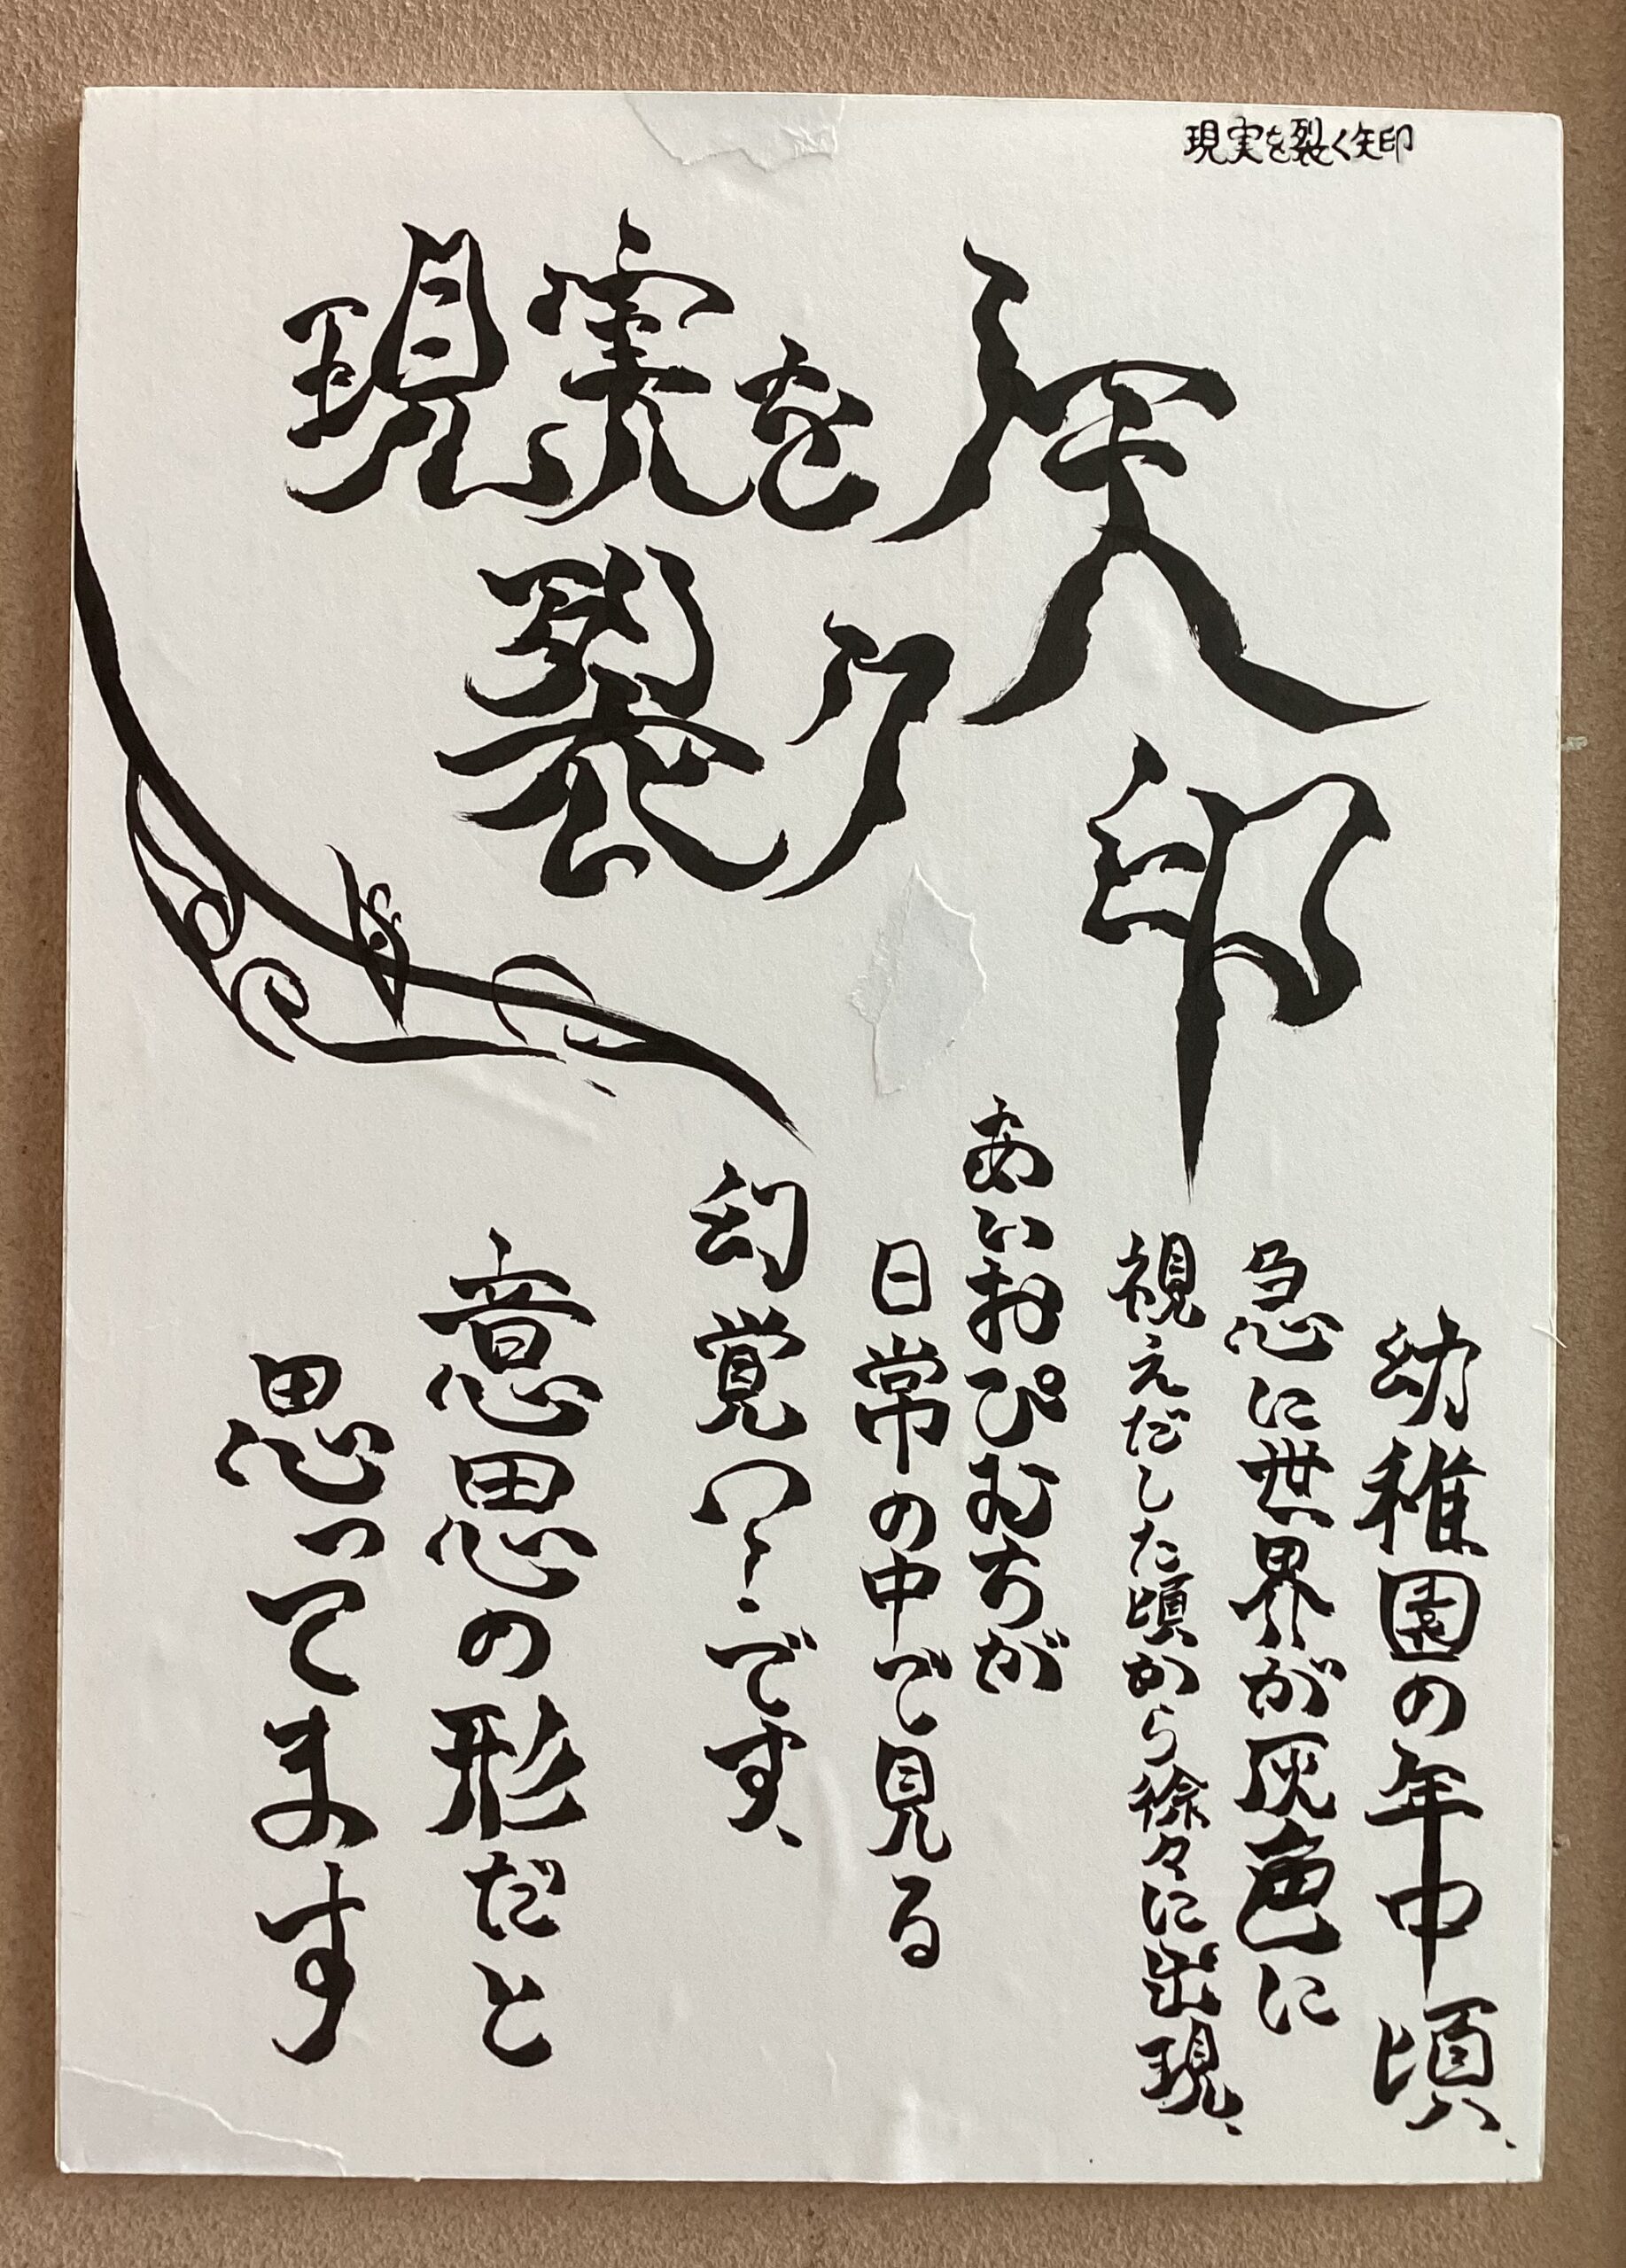 現実を裂く矢印
現実を
裂く
矢印
幼稚園の年中頃、
急に世界が灰色に
視えだした頃から徐々に出現、
あいおぴむちが
日常の中で見る
幻覚の1つです、
意思の形だと
思ってます